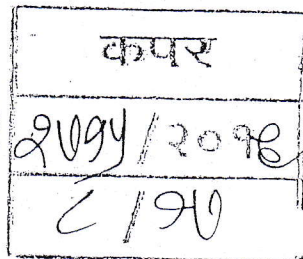 कपर
२७१५/२०१६
८/१७